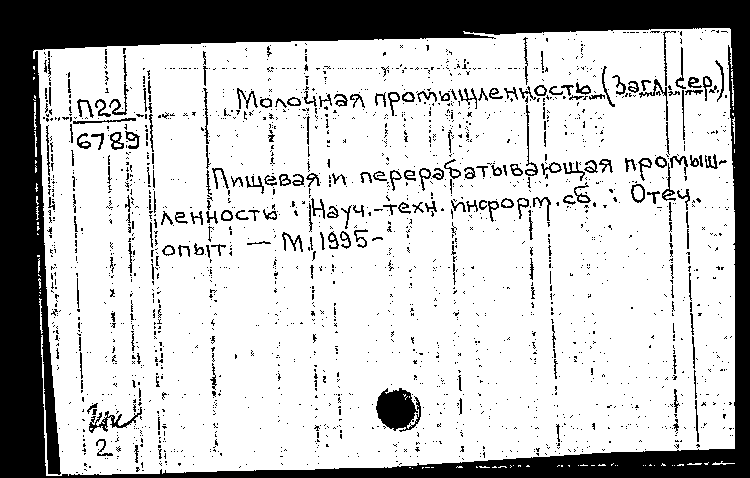 Молочная промышленность (Загл. сер.)
П22
6789
Пищевая и перерабатывающая промыш-
ленность : Науч.-техн. информ. сб. : Отеч.
опыт. — М., 1995-
2